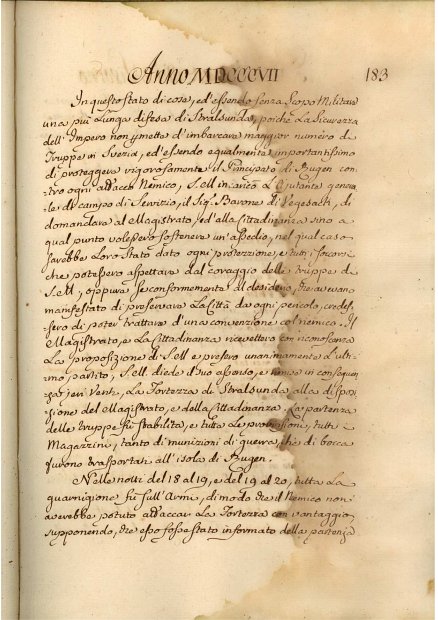 Anno MDCCCVII 183
In questo stato di cose, ed'essendo senza Scopo Militare
una più Lunga difesa di Stralsunda, poiché La Sicurezza
dell'Impero non permette d'imbarcare maggior numéro di
Truppe in Svezia, ed'essendo egualmente importantissimo
di proteggere vigorosamente il Principato di Rugen con=
tro ogni attacco Nemico, S. M incaricò l'Ajutante genera=
le di campo di Servizio, il Sig.r Barone di Vegesach, di
domandare al Magistrato, ed'alla Cittadinanza sino a
qual punto volessero sostenere un'assedio, nel qual caso
sarebbe Loro stato dato ogni protezzione, e tutti i soccorsi
che potessero aspettare dal coraggio delle Truppe di
S. M, oppure se conformemente al desiderio, che avevano
manifestato di preservare La Città da ogni pericolo, credes=
sero di poter trattare d'una convenzione col nemico. Il
Magistrato, e La Cittadinanza ricevettero con riconoscenza
La proposizione di S. M e presero unanimamente L'ulti=
mo partito, S. M. diede il suo assenso, e venne in consequen=
za jeri Vent. La Fortezza di Stralsunda alla dispo=
sizione del Magistrato, e della Cittadinanza. La partenza
delle truppe fù stabilita, e tutte Le provisioni, tutti i
Magazzini, tanto di munizioni di guerra, che di bocca
furono trasportati all'isola di Rugen.
Nelle notti del 18 al 19, e del 19 al 20, tutta La
guarnigione fù sull'Armi, di modo che il Nemico non
averebbe potuto attaccar La Fortezza con vantaggio,
supponendo, che esso fosse stato informato della partenza